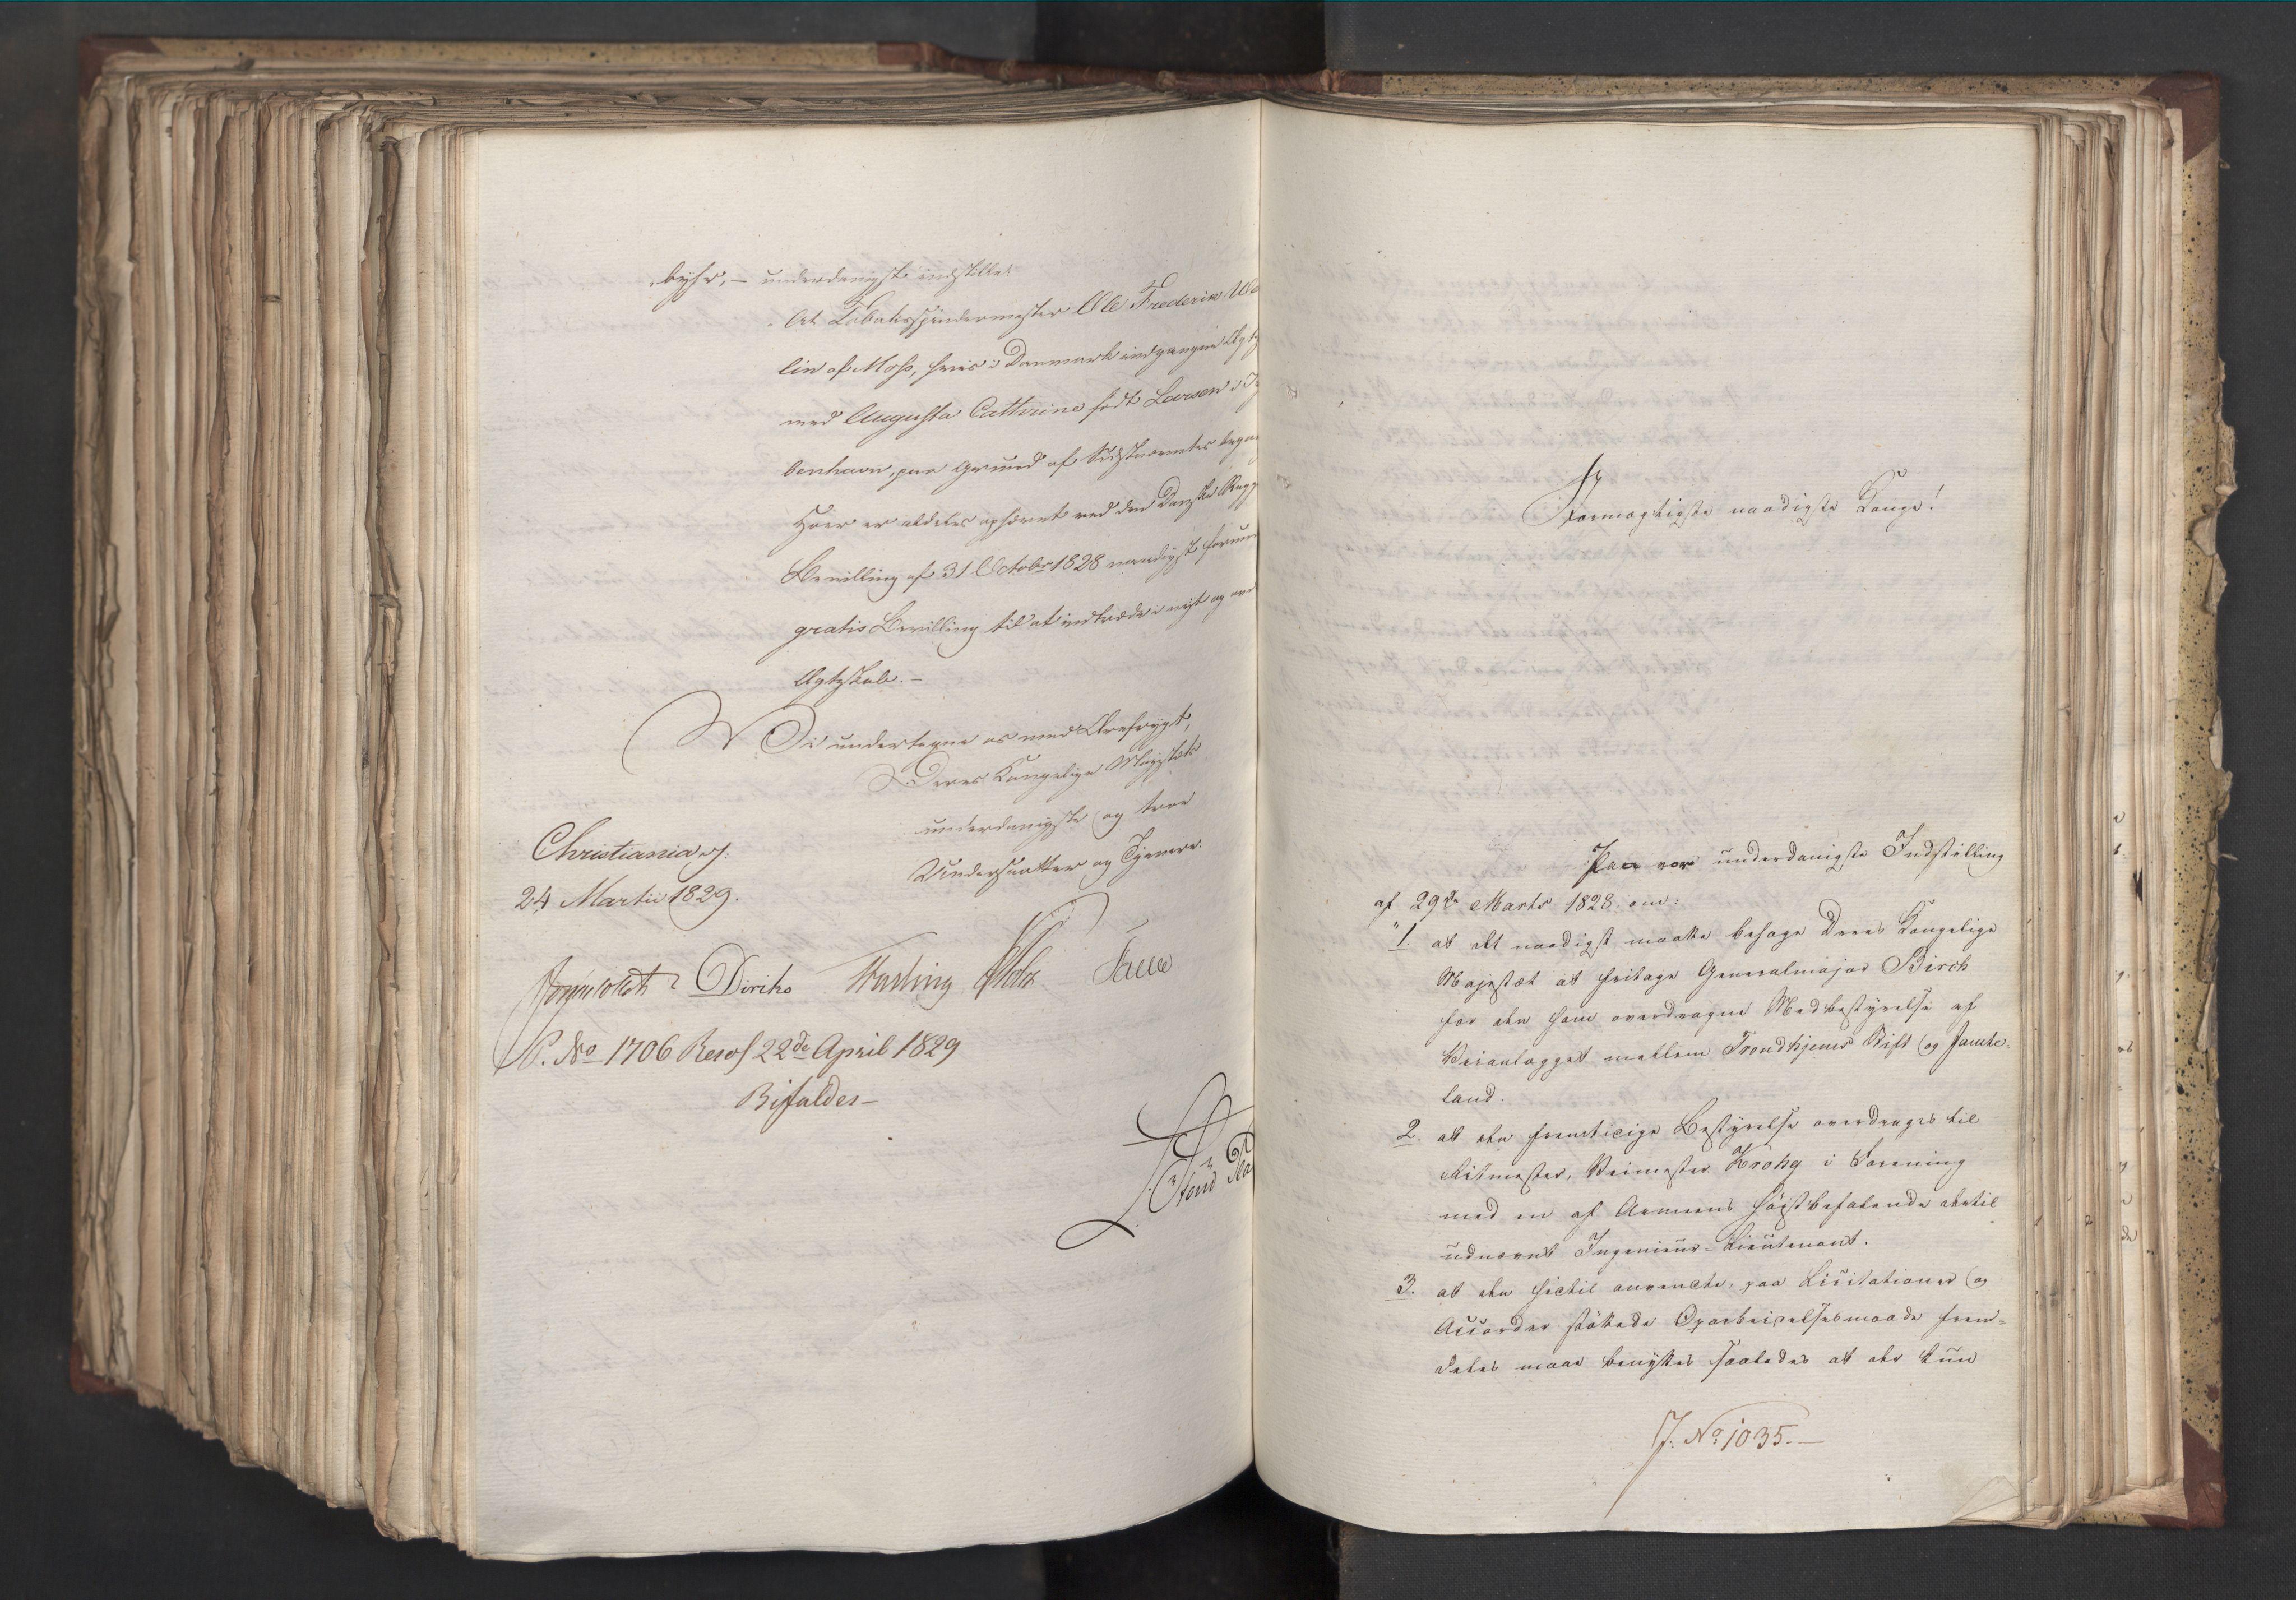 byhr, – underdanigst indstillet:
At Tobaksspindermester Ole Frederik
lin af Moss, hvis i Danmark indgangne
med Augusta Cathrine født Larsen i
benhavn, paa Grund af Sidstnævntes
er aldeles ophævet ved den Danske
Bevilling af 31 Octobr 1828 naadigst
gratis Bevilling til at indtræde i nyt og
Ægteskab. –
Vi undertegne os med Ærefrygt,
Deres Kongelige Majestæts
underdanigste og troe
Undersaatter og Tjenere.
Christiania
24 Martii 1829.
Diriks Fasting Holst
P. No 1706 Resol 22de April 1829
Bifaldes –
Stormægtigste naadigste Konge!
Paa vor underdanigste Indstilling
af 29de Marts 1828 om:
"1. at det naadigst maatte behage Deres Kongelige
Majestæt at fritage Generalmajor Birch
for den ham overdragne Medbestyrelse af
Veianlægget mellem Trondhjems Stift og Jemte-
land.
2. at den fremtidige Bestyrelse overdrages til
Ritmester, Veimester Krohg i Forening
med en af Armeens Høistbefalende dertil
udnævnt Ingenieur-Lieutenant.
3. at den hidtil anvendte, paa Licitationer og
Accorder støttede Oparbeidelsesmaade frem-
deles maae benyttes saaledes at der kun
J. No 1035. –